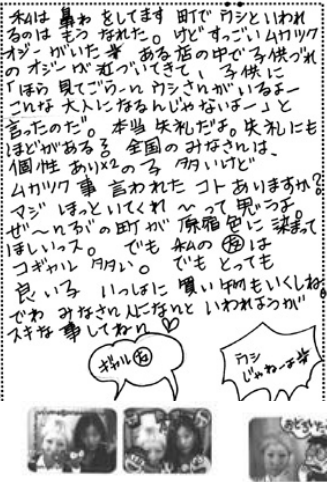 私は 鼻わ をしてます 町で ウシといわれ
るのは もう なれた。けど すっごい ムカツク
オジー がいた ある店の中で 子供づれ
の オジーが 近づいてきて、子供に
「ほら 見てごらーん ウシさんがいるよー
こんな 大人に なるんじゃないよー」と
言ったのだ。本当 失礼だよ。失礼にも
ほどがある 全国の みなさんは、
個性 あり×2の 子 多いけど
ムカツク 事 言われた コト ありますか?
マジ ほっといてくれ 〜って 思うよ。
ぜ〜んぶの町が 原宿色に 染まって
ほしいっス。 でも 私の は
コギャル 多い。 でも とっても
良い子 いっしょに 買い物もいくしね。
でわ みなさん 人になんと いわれようが
スキな 事してね
ギャル
ウシ
じゃねーよ